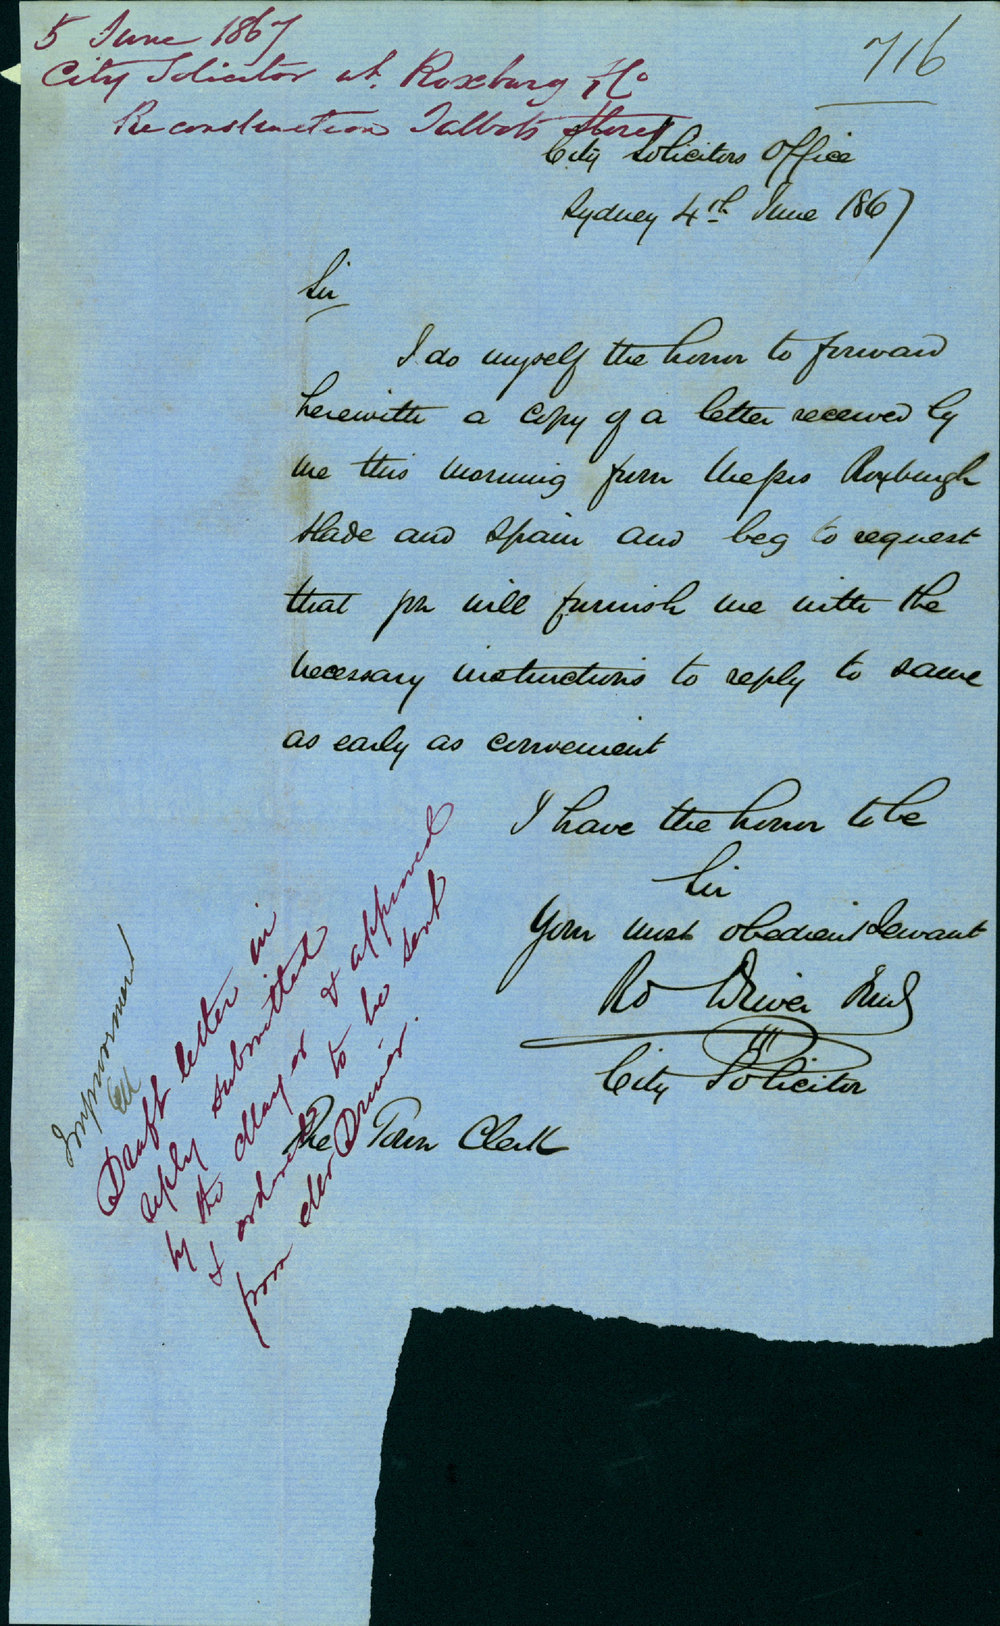 5 June 1867
City Solicitor wt. Roxburg &Co
Reconstruction Talbots Stores
716
City Solicitors Office
Sydney 4th June 1867
Sir
I do myself the honor to forward
herewith a copy of a letter received by
me this morning from Messrs Roxburgh
Slade and Spain and beg to request
that you will furnish me with the
necessary instructions to reply to same
as early as convenient
I have the honor to be
Sir
Your most obedient Servant
Rd Driver Junr
City Solicitor
The Town Clerk
Improvement
Draft letter in
reply submitted
by the Mayor & approved
& ordered to be sent
from Mr Driver.